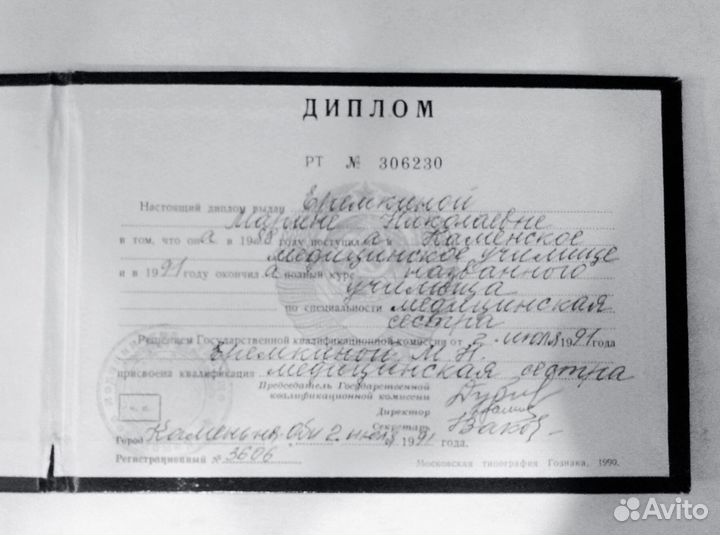 ДИПЛОМ
РТ № 306230
Настоящий диплом выдан Еремкиной
Марине Николаевне
в том, что она в 1988 году поступила в Каменское
медицинское училище
и в 1991 году окончила полный курс названного
училища
по специальности медицинская
сестра
Решением Государственной квалификационной комиссии от 2 июля 1991 года
Еремкиной М. Н.
присвоена квалификация медицинская сестра
Председатель Государственной
квалификационной комиссии
Директор
Секретарь
Город Камень на Оби 2 июля 1991 года.
Регистрационный № 3606
Московская типография Гознака, 1990.
Avito